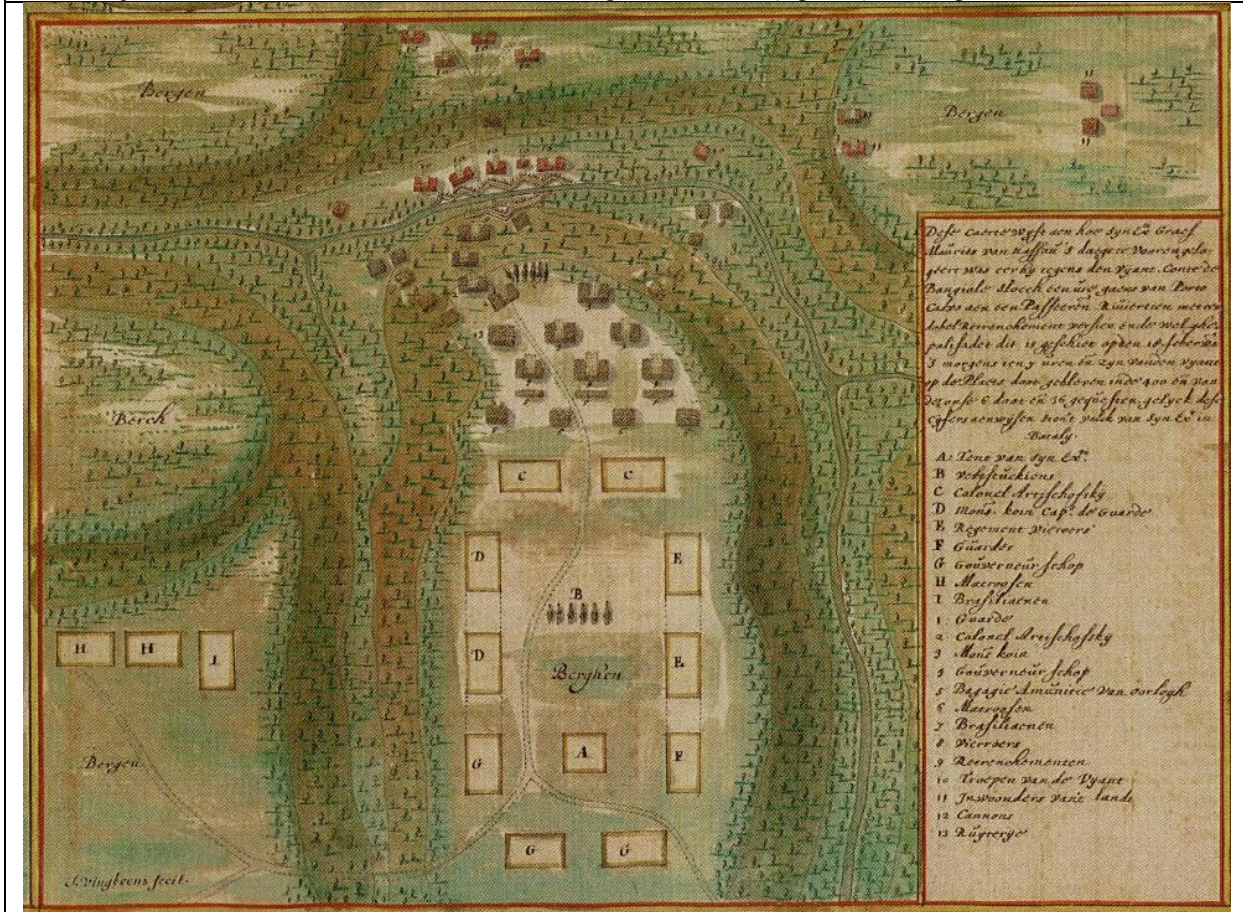 Bergen
Bergen
Berch
Bergen
Berghen
C C
D E
B
D E
H H I
G A F
G G
J. Vingboons fecit.
Dese Caerte wyst aen hoe syn Ex Graef
Maurits van Nassau 's daegs te vooren gela
geert was eer hy tegens den Vyant Conte de
Bangiolo sloech een ure gaens van Porto
Calvo aen een Rivier met een
dobel Retrenchement versien ende wel ghe
palisadet dit is geschiet op den 18 feber
S morgens ten 9 uren en zyn vanden vyant
op de Plaets doot gebleven inde 400 en van
de onse 6 doot en 36 gequesten gelyck dese
Cyfers aenwysen van syn Ex in
A Tent van syn Ex.
B veltstuckiens
C Colonel Artischofsky
D Mons. koin Cap. de Guarde
E Regement vieroers
F Guarder
G Gouverneur schop
H Matroosen
I Brasilianen
1 Guarde
2 Colonel Artischofsky
3 Mons koin
Gouverneur schop
5 Bagagie Amunitie van oorlogh
6 Matroosen
7 Brasilianen
8 vierroers
9 Retrenchementen
10 Troepen van de Vyant
11 Inwoonders vant lande
12 Cannons
13 Ruyterye